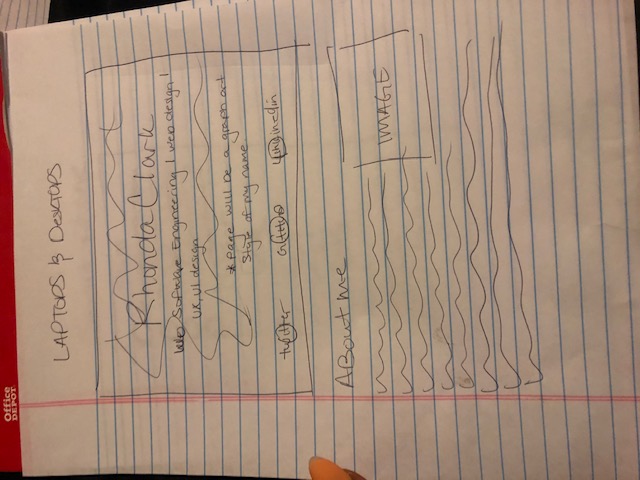 Office
DEPOT
LAPTOPS & DESKTOPS
Rhonda Clark
Software Engineering | web design |
UX, UI design
* page will be a graph art
Style of my name
twitter GitHub linkedin
ABout me
IMAGE